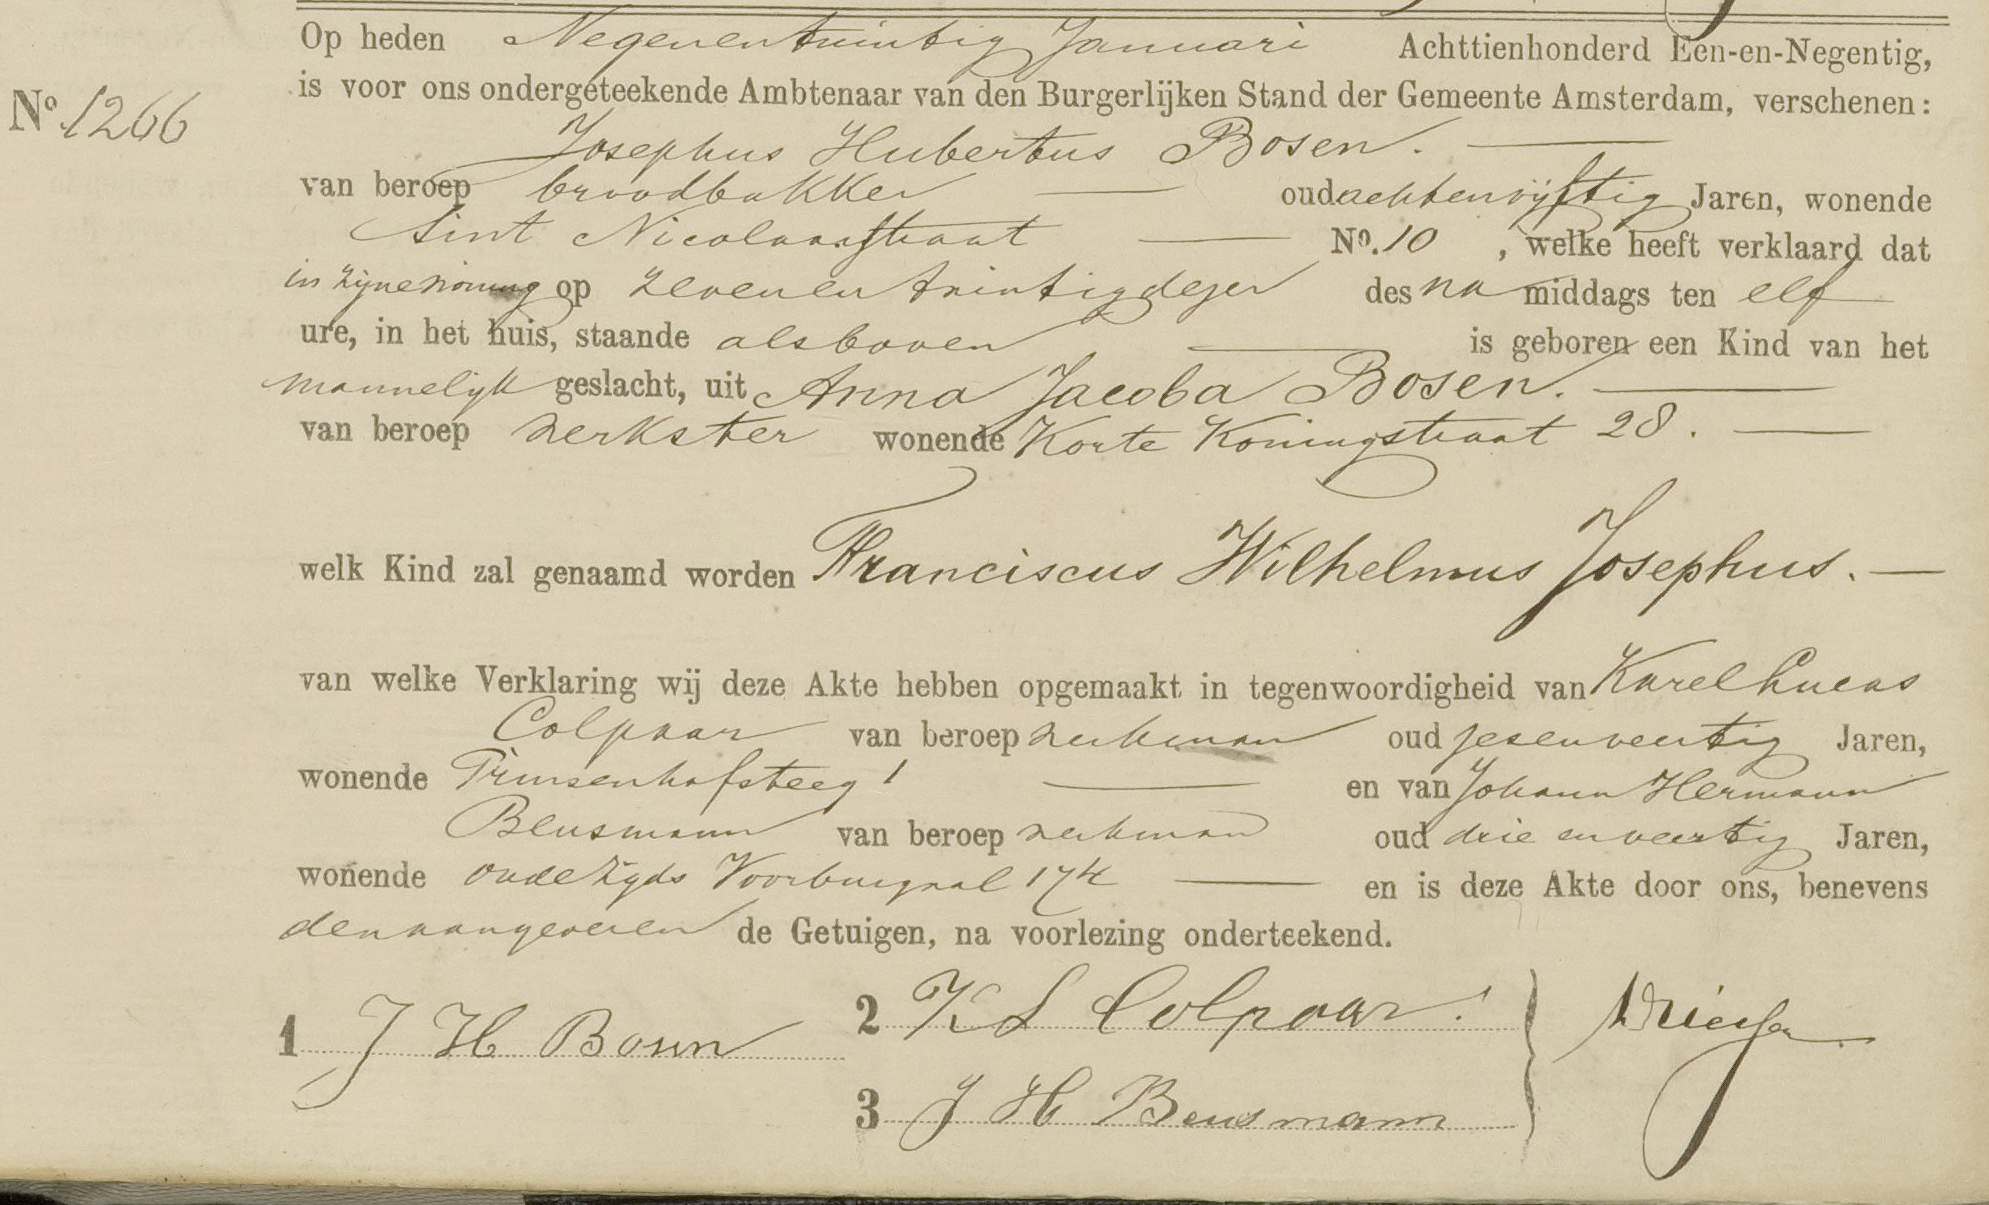 Op heden Negenentwintig Januari Achttienhonderd Een-en-Negentig,
is voor ons ondergeteekende Ambtenaar van den Burgerlijken Stand der Gemeente Amsterdam, verschenen:
No. 1266
Josephus Hubertus Bosen.
van beroep broodbakker oud achtenvijftig Jaren, wonende
Sint Nicolaasstraat No. 10, welke heeft verklaard dat
in zijne woning op zevenentwintig dezer des na middags ten elf
ure, in het huis, staande alsboven is geboren een Kind van het
mannelijk geslacht, uit Anna Jacoba Bosen.
van beroep werkster wonende Korte Koningstraat 28.
welk Kind zal genaamd worden Franciscus Wilhelmus Josephus.
van welke Verklaring wij deze Akte hebben opgemaakt in tegenwoordigheid van Karel Lucas
Colpaar van beroep werkman oud zesenveertig Jaren,
wonende Prinsenhofsteeg 1 en van Johann Hermann
Beusmann van beroep werkman oud drie enveertig Jaren,
wonende oude Zijds Voorburgwal 174 en is deze Akte door ons, benevens
den aangever en de Getuigen, na voorlezing onderteekend.
1 J H Bosen
2 K L Colpaar.
3 J H Beusmann